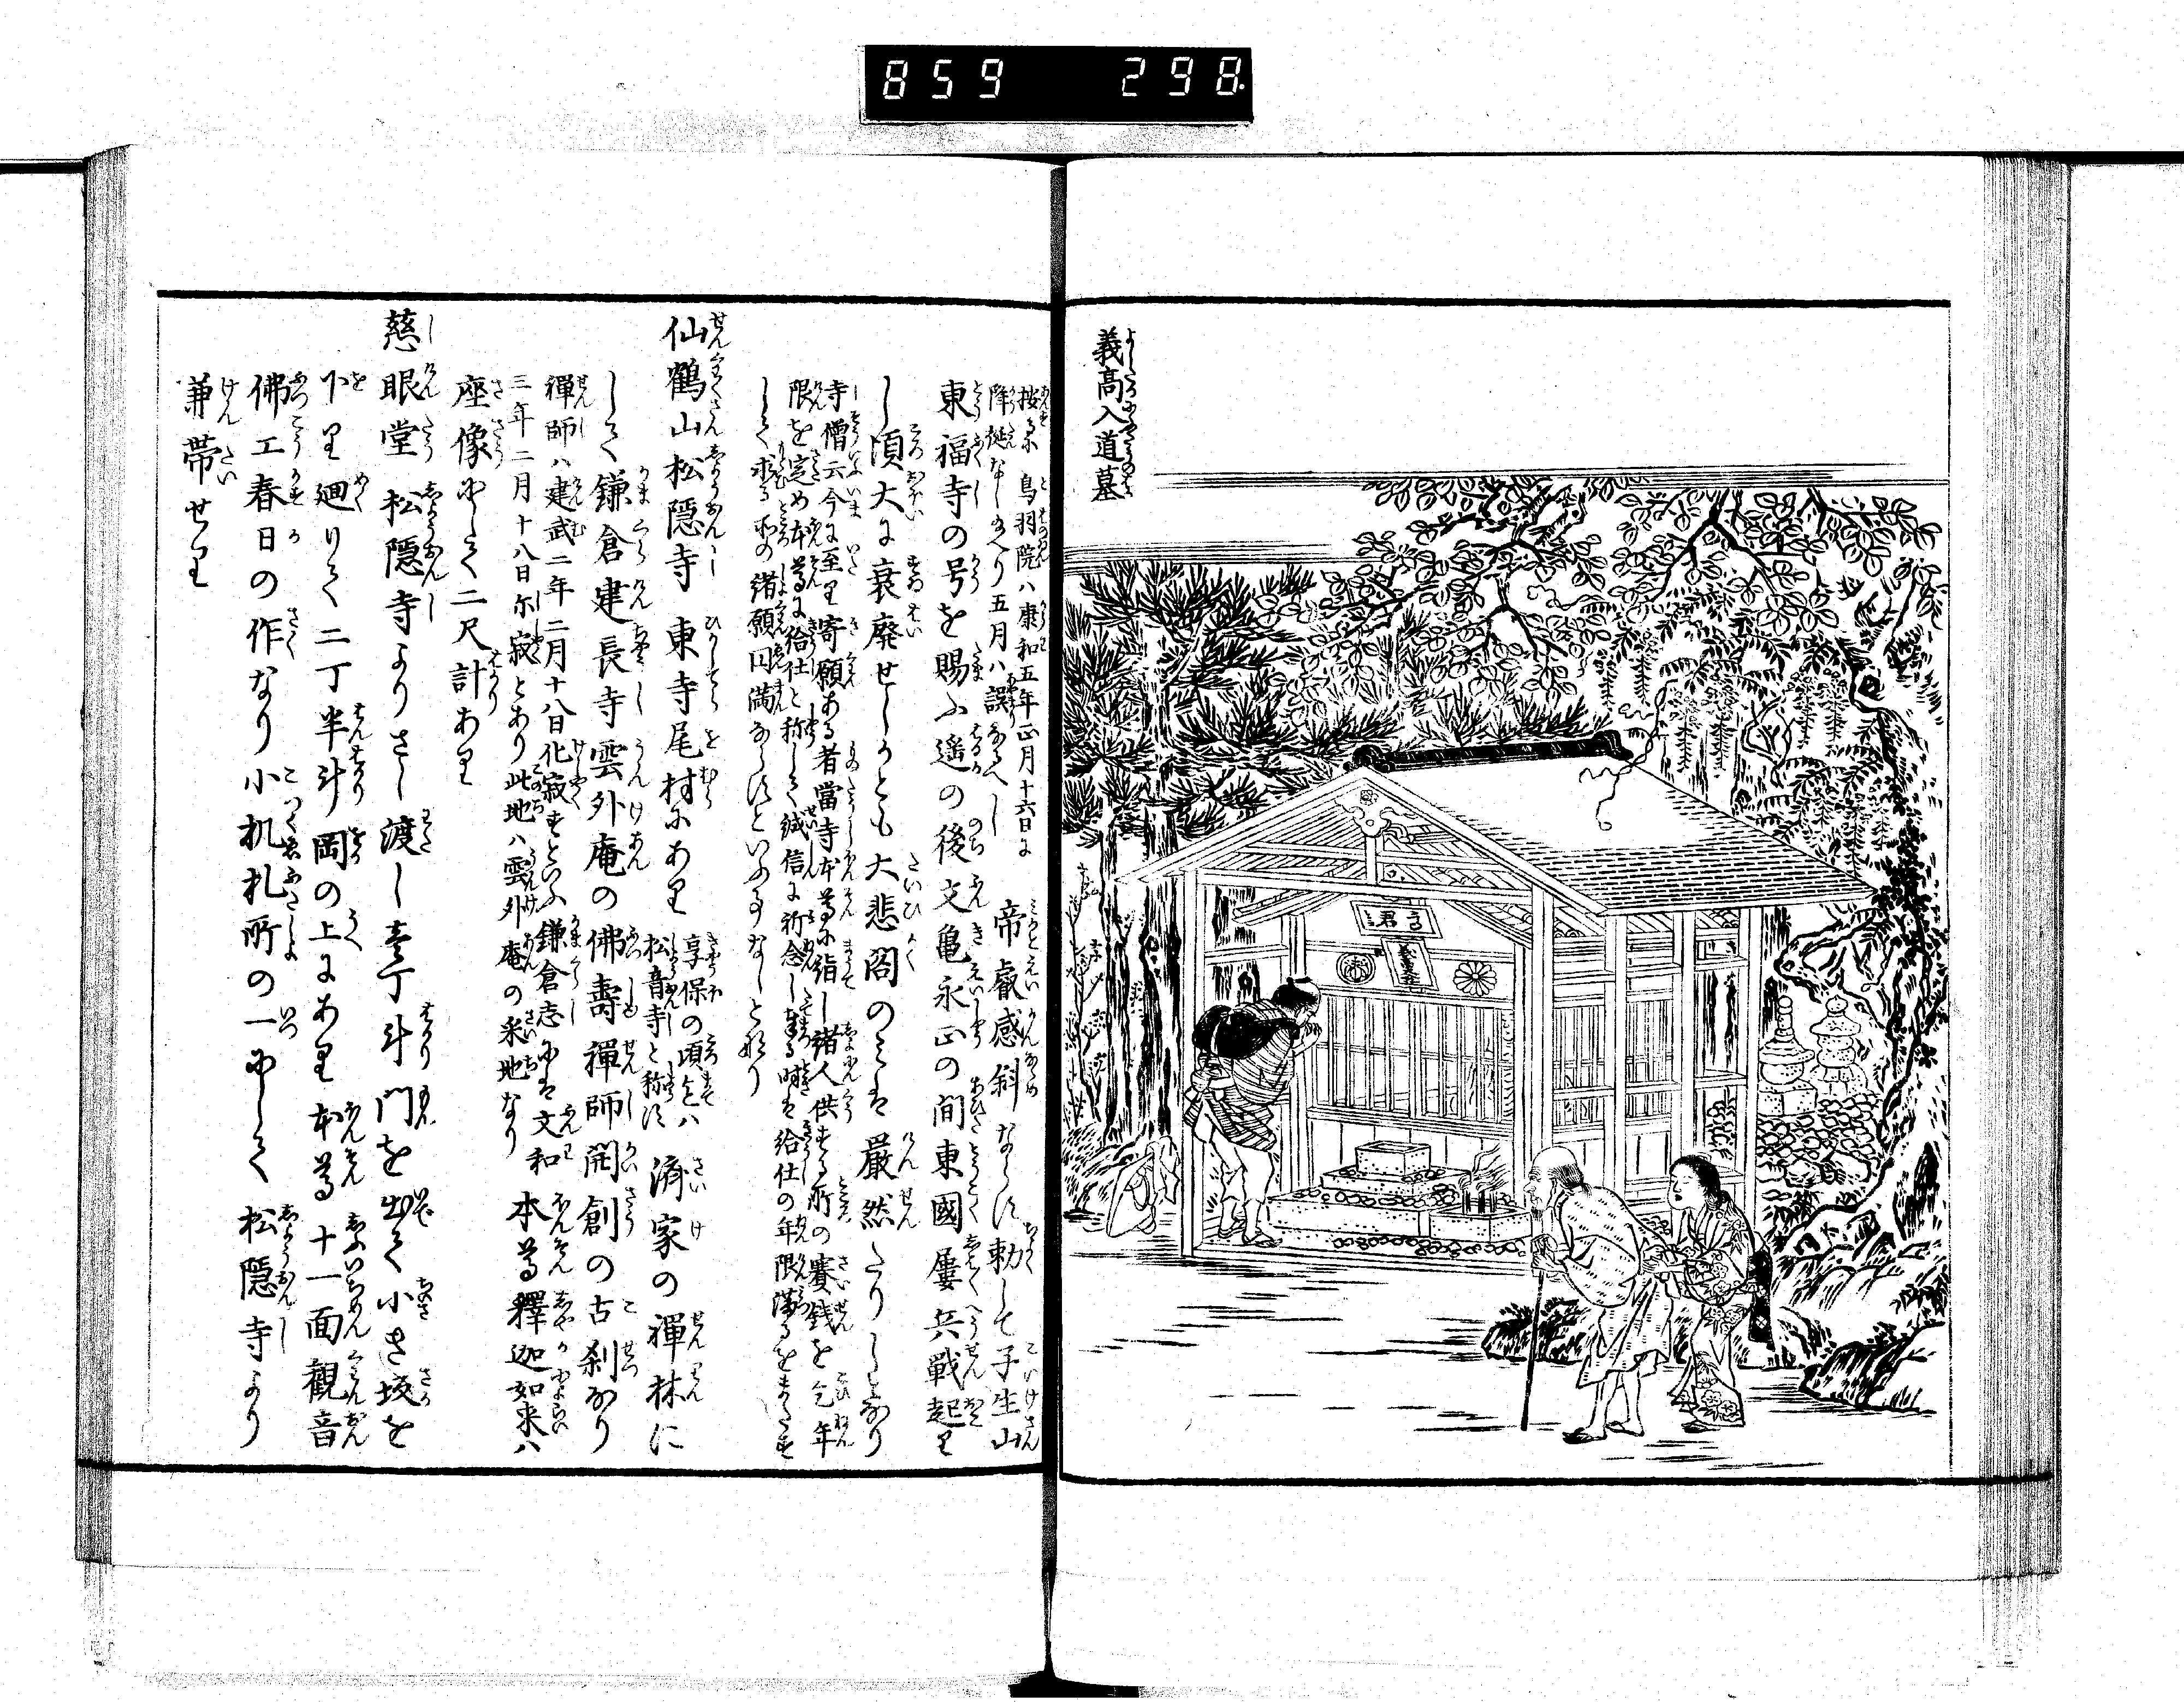 859 298
義高入道墓
按るに鳥羽院ハ康和五年正月十六日に
降誕なし給へり五月ハ誤なるへし
帝叡感斜ならす勅して子生山
東福寺の号を賜ふ遙の後文亀永正の間東國屢兵戰起り
し頃大に衰廃せしかとも大悲閣のみは巌然たりしとなり
寺僧云今に至り寄願ある者當寺本尊に詣し諸人供する所の賽銭を乞年
限を定め本尊に給仕と称して誠信に祈念し奉る時は給仕の年限満るをまたす
して求る所の諸願円満ならすといふ事なしとなり
仙鶴山松隠寺 東寺尾村にあり
享保の頃まてハ
松音寺と称す
済家の禅林に
して鎌倉建長寺雲外庵の佛壽禅師開創の古刹なり
禅師ハ建武二年二月十八日化寂すといふ鎌倉志には文和
三年二月十八日示寂とあり此地ハ雲外庵の釆地なり
本尊釋迦如来ハ
座像にして二尺計あり
慈眼堂 松隠寺よりさし渡し壱丁斗門を出て小き坂を
下り廻りて二丁半斗岡の上にあり本尊十一面觀音
佛工春日の作なり小机札所の一にして松隠寺より
兼帯せり